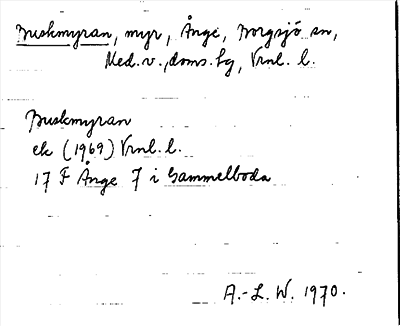 Buskmyran, myr, Ånge, Borgsjö sn,
Med. v., doms. hg, Vrnl. l.
Buskmyran
ek (1969) Vrnl. l.
17 F Ånge 7 i Gammelboda
A.-L. W. 1970.